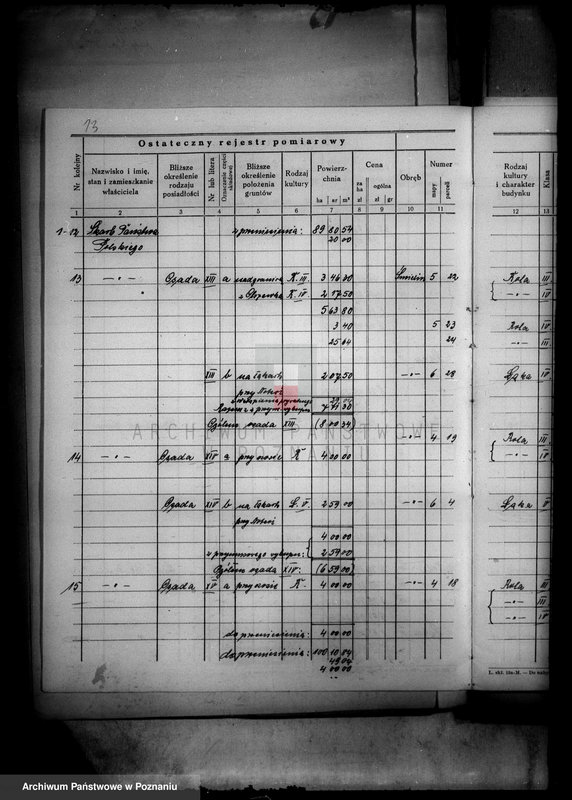 13
Ostateczny rejestr pomiarowy
Nr kolejny
Nazwisko i imię, stan i zamieszkanie właściciela
Bliższe określenie rodzaju posiadłości
Nr lub litera
Oznaczenie części składowej
Bliższe określenie położenia gruntów
Rodzaj kultury
Powierzchnia
ha ar m²
Cena
za ha zł
ogólna zł gr
Obręb
Numer
mapy parceli
Rodzaj kultury i charakter budynku
Klasa
1 2 3 4 5 6 7 8 9 10 11 12 13
1-12 Skarb Państwa z przeniesienia: 89 80 54
Polskiego 20 00
13 -"- Osada XIII a K. III 3 46 30 5 22 Rola III
K. IV 2 17 50 -"- IV
5 63 80
3 40 5 23 Rola IV
25 64 24 -"- III
XIII b na łąkach 2 07 50 -"- 6 28 Łąka IV
przy Noteci
7 41 30
Ogółem osada XIII (8 00 34)
-"- 4 19 Rola III
14 -"- Osada XIV a przy szosie R 4 00 00 -"- IV
Osada XIV b na łąkach Ł. V 2 59 00 -"- 6 4 Łąka V
przy Noteci
4 00 00
2 59 00
Ogółem osada XIV: (6 59 00)
15 -"- Osada XV a przy szosie R 4 00 00 -"- 4 18 Rola II
-"- III
-"- IV
do przeniesienia: 4 00 00
do przeniesienia: 100 10 84
49 04
4 00 00
ARCHIWUM PAŃSTWOWE
Archiwum Państwowe w Poznaniu